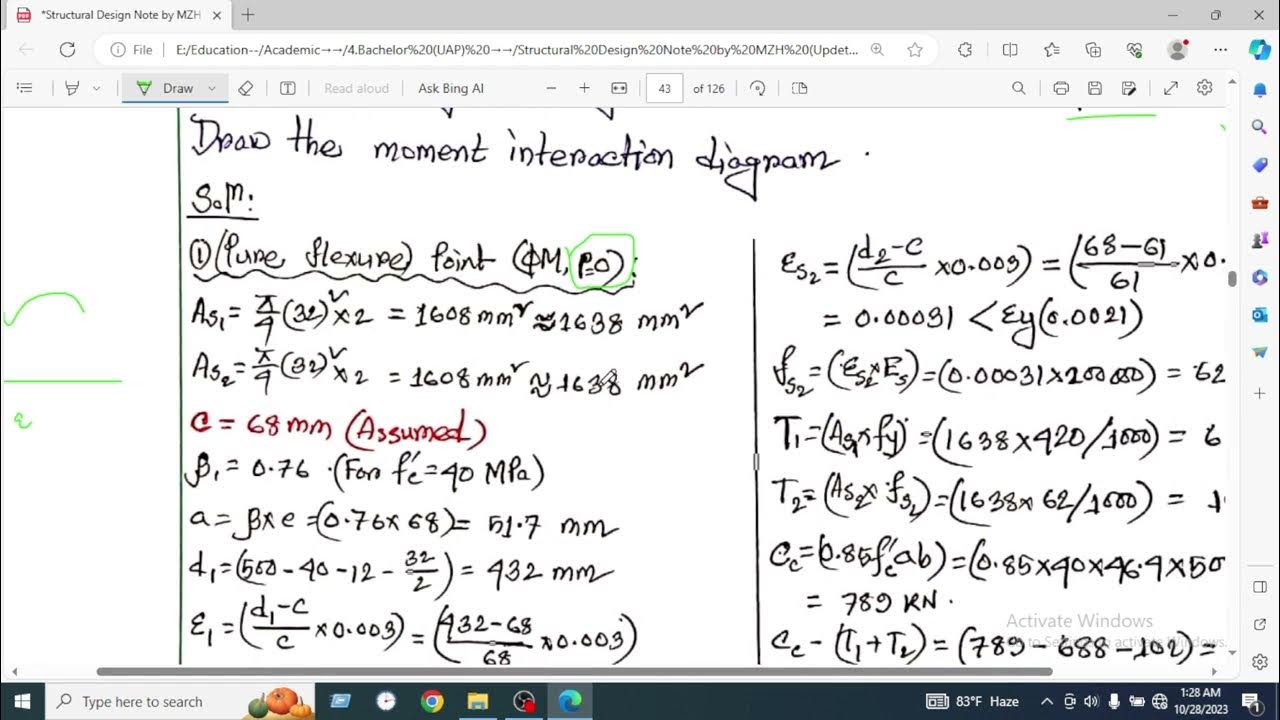 *Structural Design Note by MZH
File
E:/Education--/Academic→→/4.Bachelor%20(UAP)%20→→/Structural%20Design%20Note%20by%20MZH%20(Updet...
Draw
Read aloud
Ask Bing AI
43 of 126
Draw the moment interaction diagram.
Soln:
① (Pure flexure) Point (ϕM, P=0):
As₁ = π/4 (32)² × 2 = 1608 mm² ≈ 1638 mm²
As₂ = π/4 (32)² × 2 = 1608 mm² ≈ 1638 mm²
C = 68 mm (Assumed)
β₁ = 0.76 (For f'c = 40 MPa)
a = β×c = (0.76×68) = 51.7 mm
d₁ = (500 - 40 - 12 - 32/2) = 432 mm
ε₁ = (d₁-c/c × 0.003) = (432-68/68 × 0.003)
εs₂ = (d₂-c/c × 0.003) = (68-61/61 × 0.
= 0.00031 < εy (0.0021)
fs₂ = (εs₂ × Es) = (0.00031 × 200000) = 62
T₁ = (As₁ × fy) = (1638 × 420/1000) = 6
T₂ = (As₂ × fs₂) = (1638 × 62/1000) = 1
Cc = (0.85f'c ab) = (0.85×40×46.4×50
= 789 KN.
Cc - (T₁+T₂) = (789 - 688 - 102) =
Activate Windows
to activate Windows.
Type here to search
83°F Haze
1:28 AM
10/28/2023